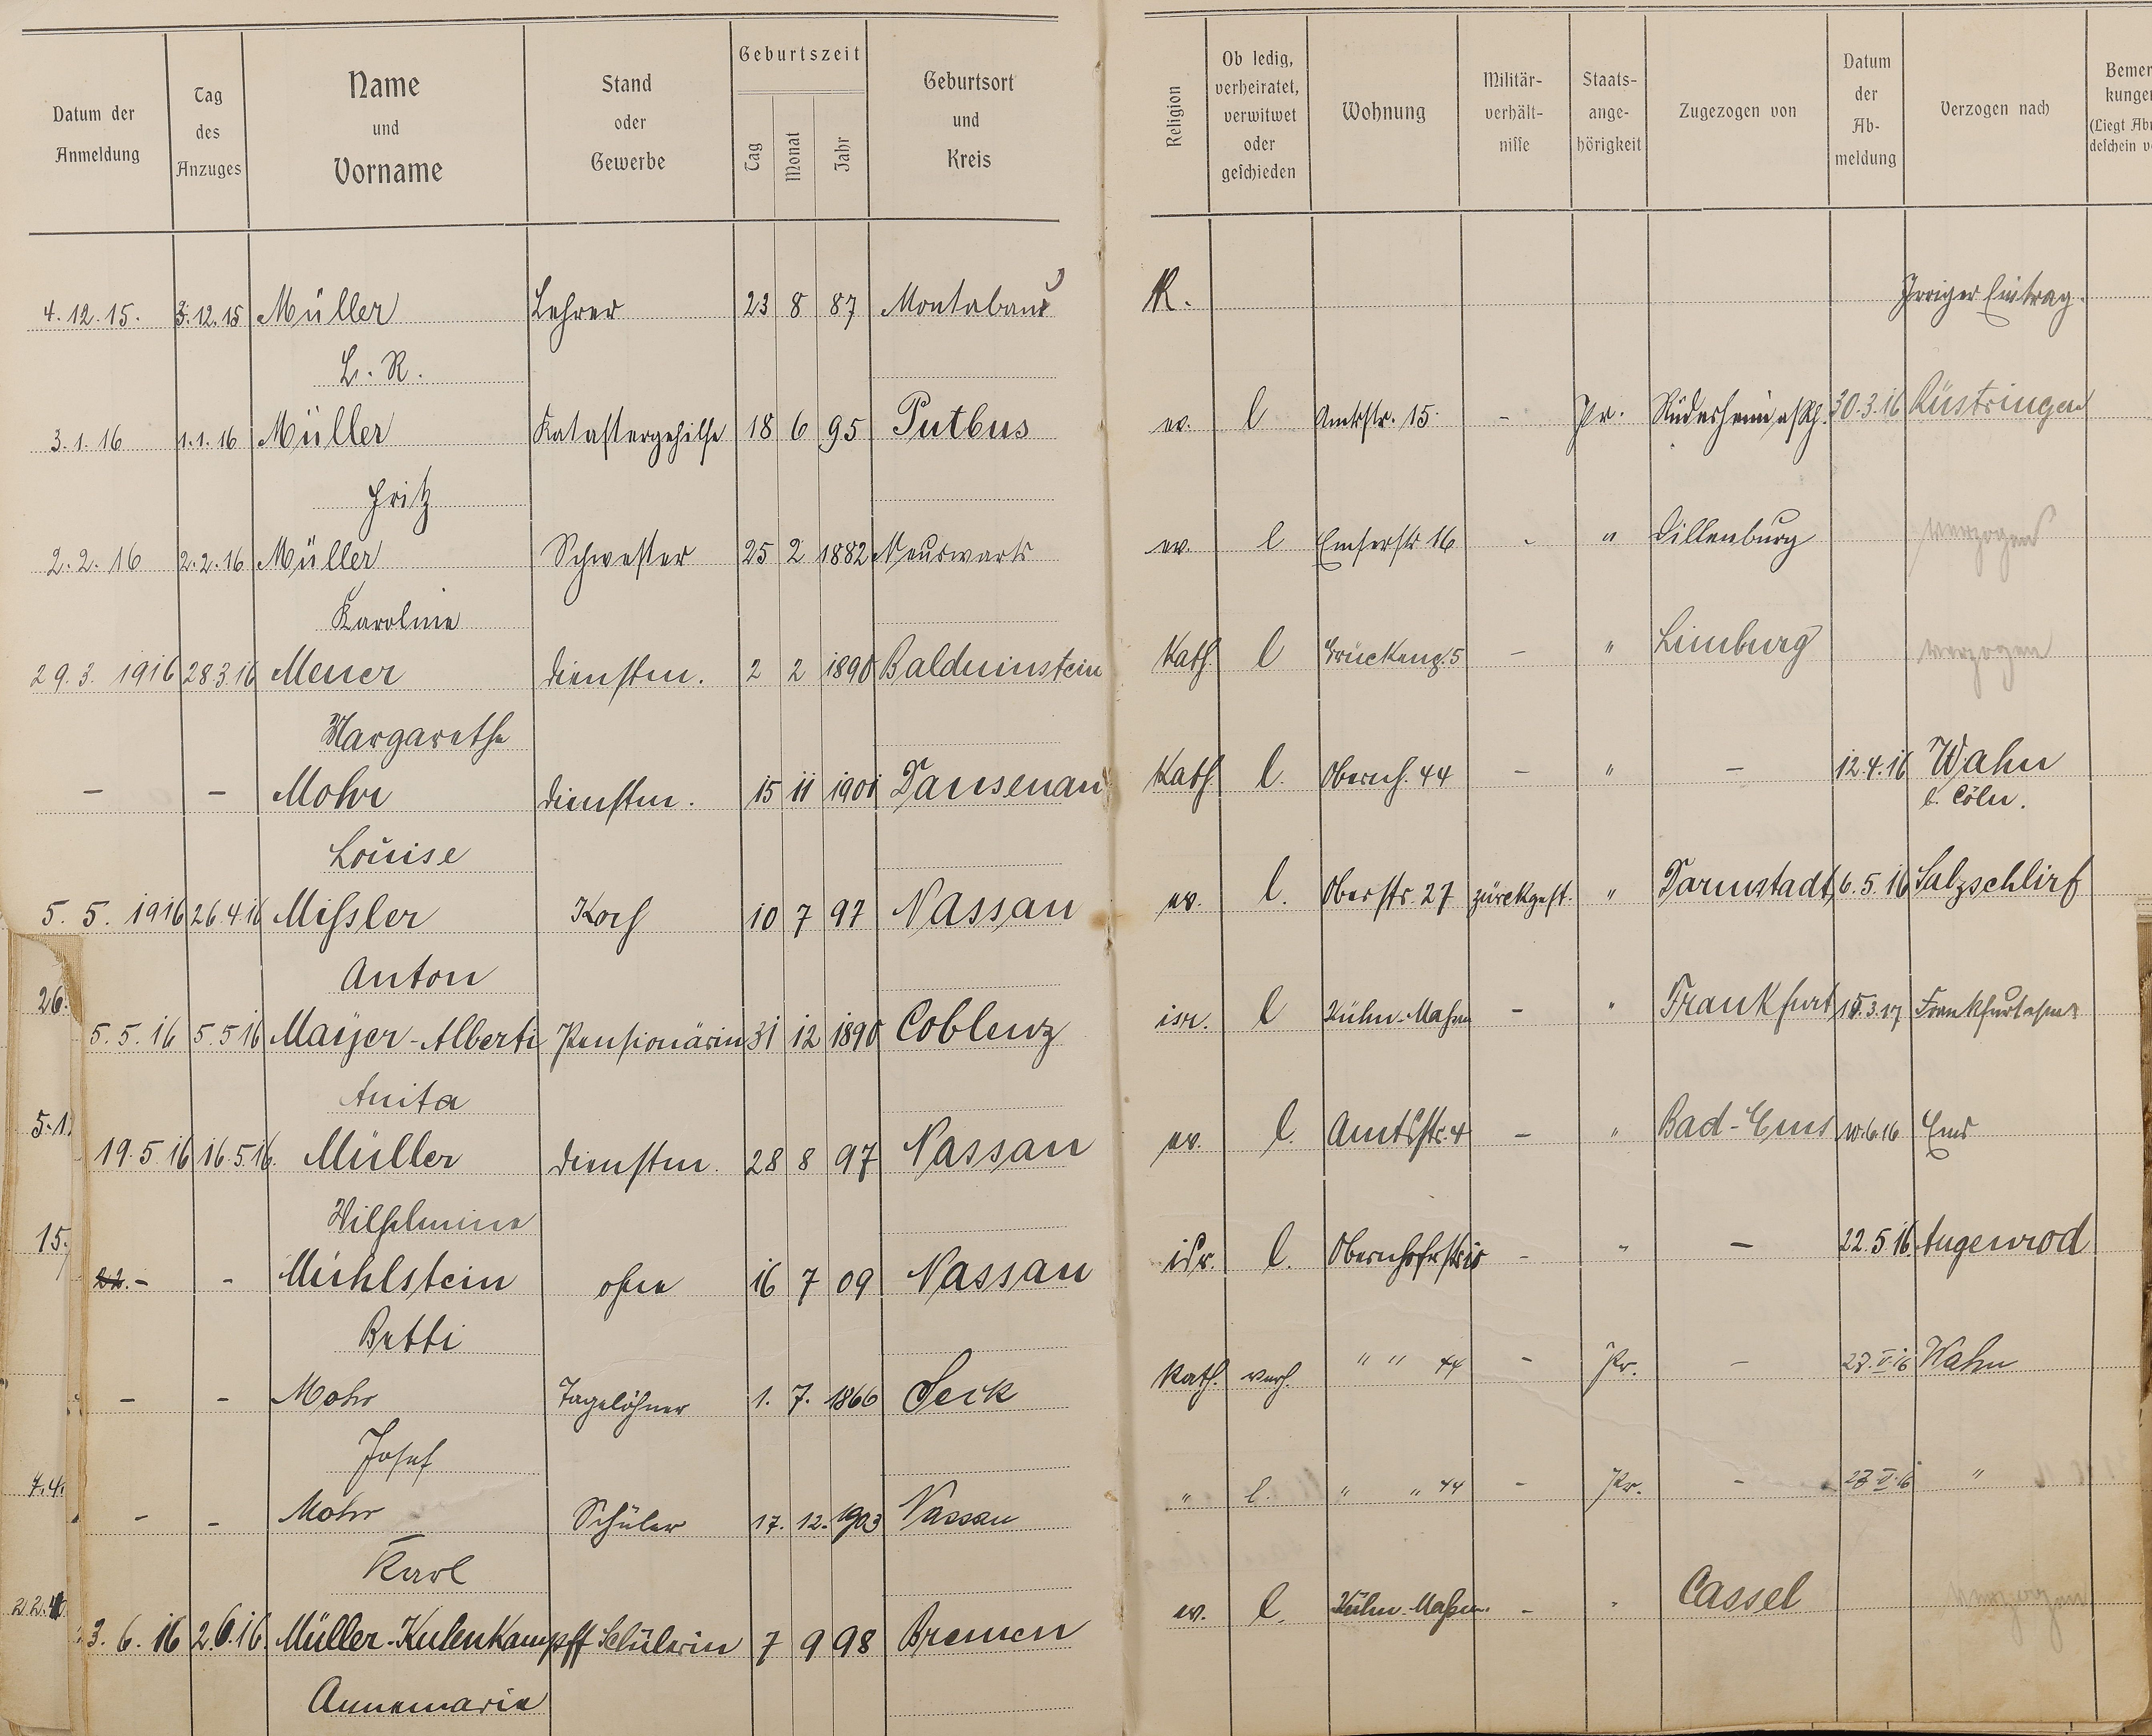 Datum der Anmeldung
Tag des Anzuges
Name und Vorname
Stand oder Gewerbe
Geburtszeit
Tag Monat Jahr
Geburtsort und Kreis
Religion
Ob ledig, verheiratet, verwitwet oder geschieden
Wohnung
Militär-verhält-nisse
Staats-ange-hörigkeit
Zugezogen von
Datum der Ab-meldung
Verzogen nach
4.12.15. 3.12.15 Müller Lehrer 23 8 87 Montabaur K. Irriger Eintrag.
L. R.
3.1.16 1.1.16 Müller Katastergehilfe 18 6 95 Putbus ev. l Amtstr. 15 - Pr. Rüdesheim a/Rh. 30.3.16 Rüstringen
Fritz
2.2.16 2.2.16 Müller Schwester 25 2 1882 Neuswarts ev. l Emserstr 16 - " Dillenburg verzogen
Karoline
29.3.1916 28.3.16 Meuer Dienstm. 2 2 1890 Balduinstein Kath. l Brückeng. 5 - " Limburg verzogen
Margarethe
- - Mohr Dienstm. 15 11 1901 Dausenau Kath. l. Obernh. 44 - " - 12.4.16 Wahn
b. Cöln.
Louise
5.5.1916 26.4.16 Mißler Koch 10 7 97 Nassau ev. l. Oberstr. 27 zurückgest. " Darmstadt 6.5.16 Salzschlirf
Anton
5.5.16 5.5.16 Mayer-Alberti Pensionärin 31 12 1890 Coblenz isr. l Kühn-Maßm - " Frankfurt 15.3.17 Frankfurt a/m
Anita
19.5.16 16.5.16. Müller Dienstm. 28 8 97 Nassau ev. l. Amtsstr. 4 - " Bad-Ems 10.6.16 Ems
Wilhelmine
22. - - Mühlstein ohne 16 7 09 Nassau isr. l. Obernhofrstr 10 - " - 22.5.16 Angenrod
Betti
- - Mohr Tagelöhner 1. 7. 1866 Seck Kath. verh. " " 44 - Pr. - 27.V.16 Wahn
Josef
- - Mohr Schüler 17. 12. 1903 Nassau " l. " " 44 - Pr. - 27.V.16 "
Karl
3.6.16 2.6.16 Müller-Kulenkampff Schülerin 7 9 98 Bremen ev. l. Kühn-Maßm. - " Cassel verzogen
Annemarie
26.
5.1.
15.
7.4.